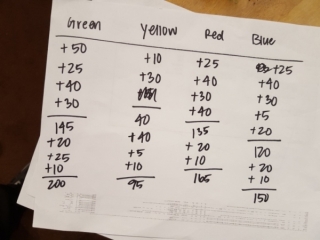 Green Yellow Red Blue
+50 +10 +25 +25
+25 +30 +40 +40
+40 +30 +30
+30 40 +40 +5
145 +40 135 +20
+20 +5 +20 120
+25 +10 +10 +20
+10 95 165 +10
200 150